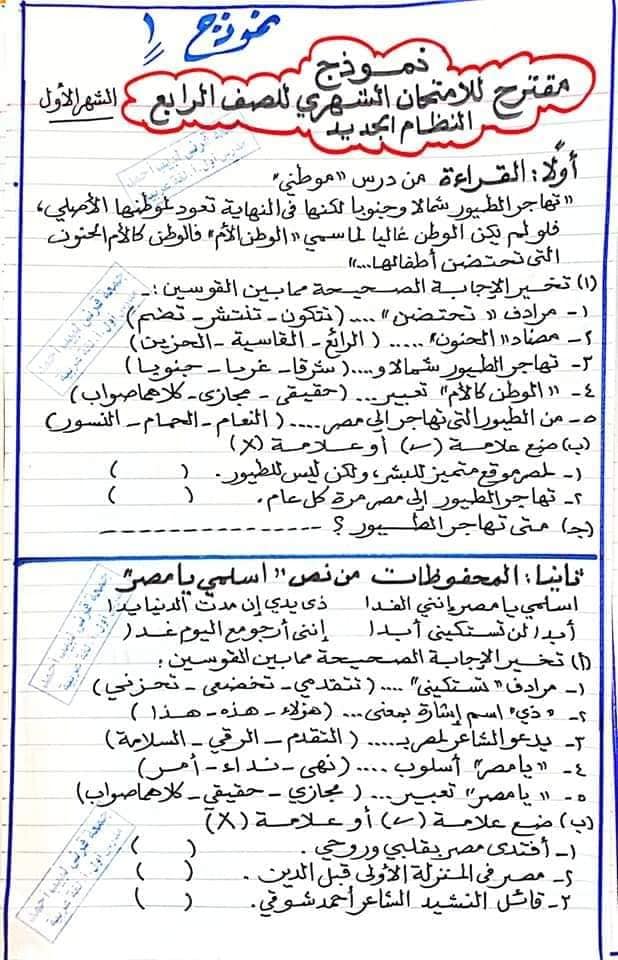 نموذج ١
نموذج
مقترح للامتحان الشهري للصف الرابع
النظام الجديد
الشهر الأول
أولًا: القراءة من درس "موطني"
"تهاجر الطيور شمالا وجنوبا لكنها في النهاية تعود لموطنها الأصلي،
فلو لم يكن الوطن غاليا لما سمي "الوطن الأم" فالوطن كالأم الحنون
التى تحتضن أطفالها..."
(أ) تخير الإجابة الصحيحة مما بين القوسين:ـ
١- مرادف "تحتضن".... (تتكون - تنتشر - تضم)
٢- مضاد "الحنون".... (الرائع - القاسية - الحزين)
٣- تهاجر الطيور شمالا و.... (شرقا - غربا - جنوبا)
٤- "الوطن كالأم" تعبير... (حقيقي - مجازى - كلاهما صواب)
٥- من الطيور التى تهاجر إلى مصر.... (النعام - الحمام - النسور)
(ب) ضع علامة (✓) أو علامة (X)
١- لمصر موقع متميز للبشر، ولكن ليس للطيور. ( )
٢- تهاجر الطيور إلى مصر مرة كل عام. ( )
(جـ) متى تهاجر الطيور ؟ ---------------
ثانيا: المحفوظات من نص "اسلمي يا مصر"
اسلمي يا مصر إنني الفدا ذى يدي إن مدت الدنيا يدا
أبدا لن تستكيني أبدا إنني أرجو مع اليوم غدا
(أ) تخير الإجابة الصحيحة مما بين القوسين:
١- مرادف "تستكيني".... (تتقدمي - تخضعي - تحزني)
٢- "ذي" اسم إشارة بمعنى... (هؤلاء - هذه - هذا)
٣- يدعو الشاعر لمصر بـ..... (التقدم - الرقي - السلامة)
٤- "يا مصر" أسلوب .... (نهى - نداء - أمر)
٥- "يا مصر" تعبير... (مجازي - حقيقي - كلاهما صواب)
(ب) ضع علامة (✓) أو علامة (X)
١- أفتدى مصر بقلبي وروحي. ( )
٢- مصر فى المنزلة الأولى قبل الدين. ( )
٣- قائل النشيد الشاعر أحمد شوقي. ( )